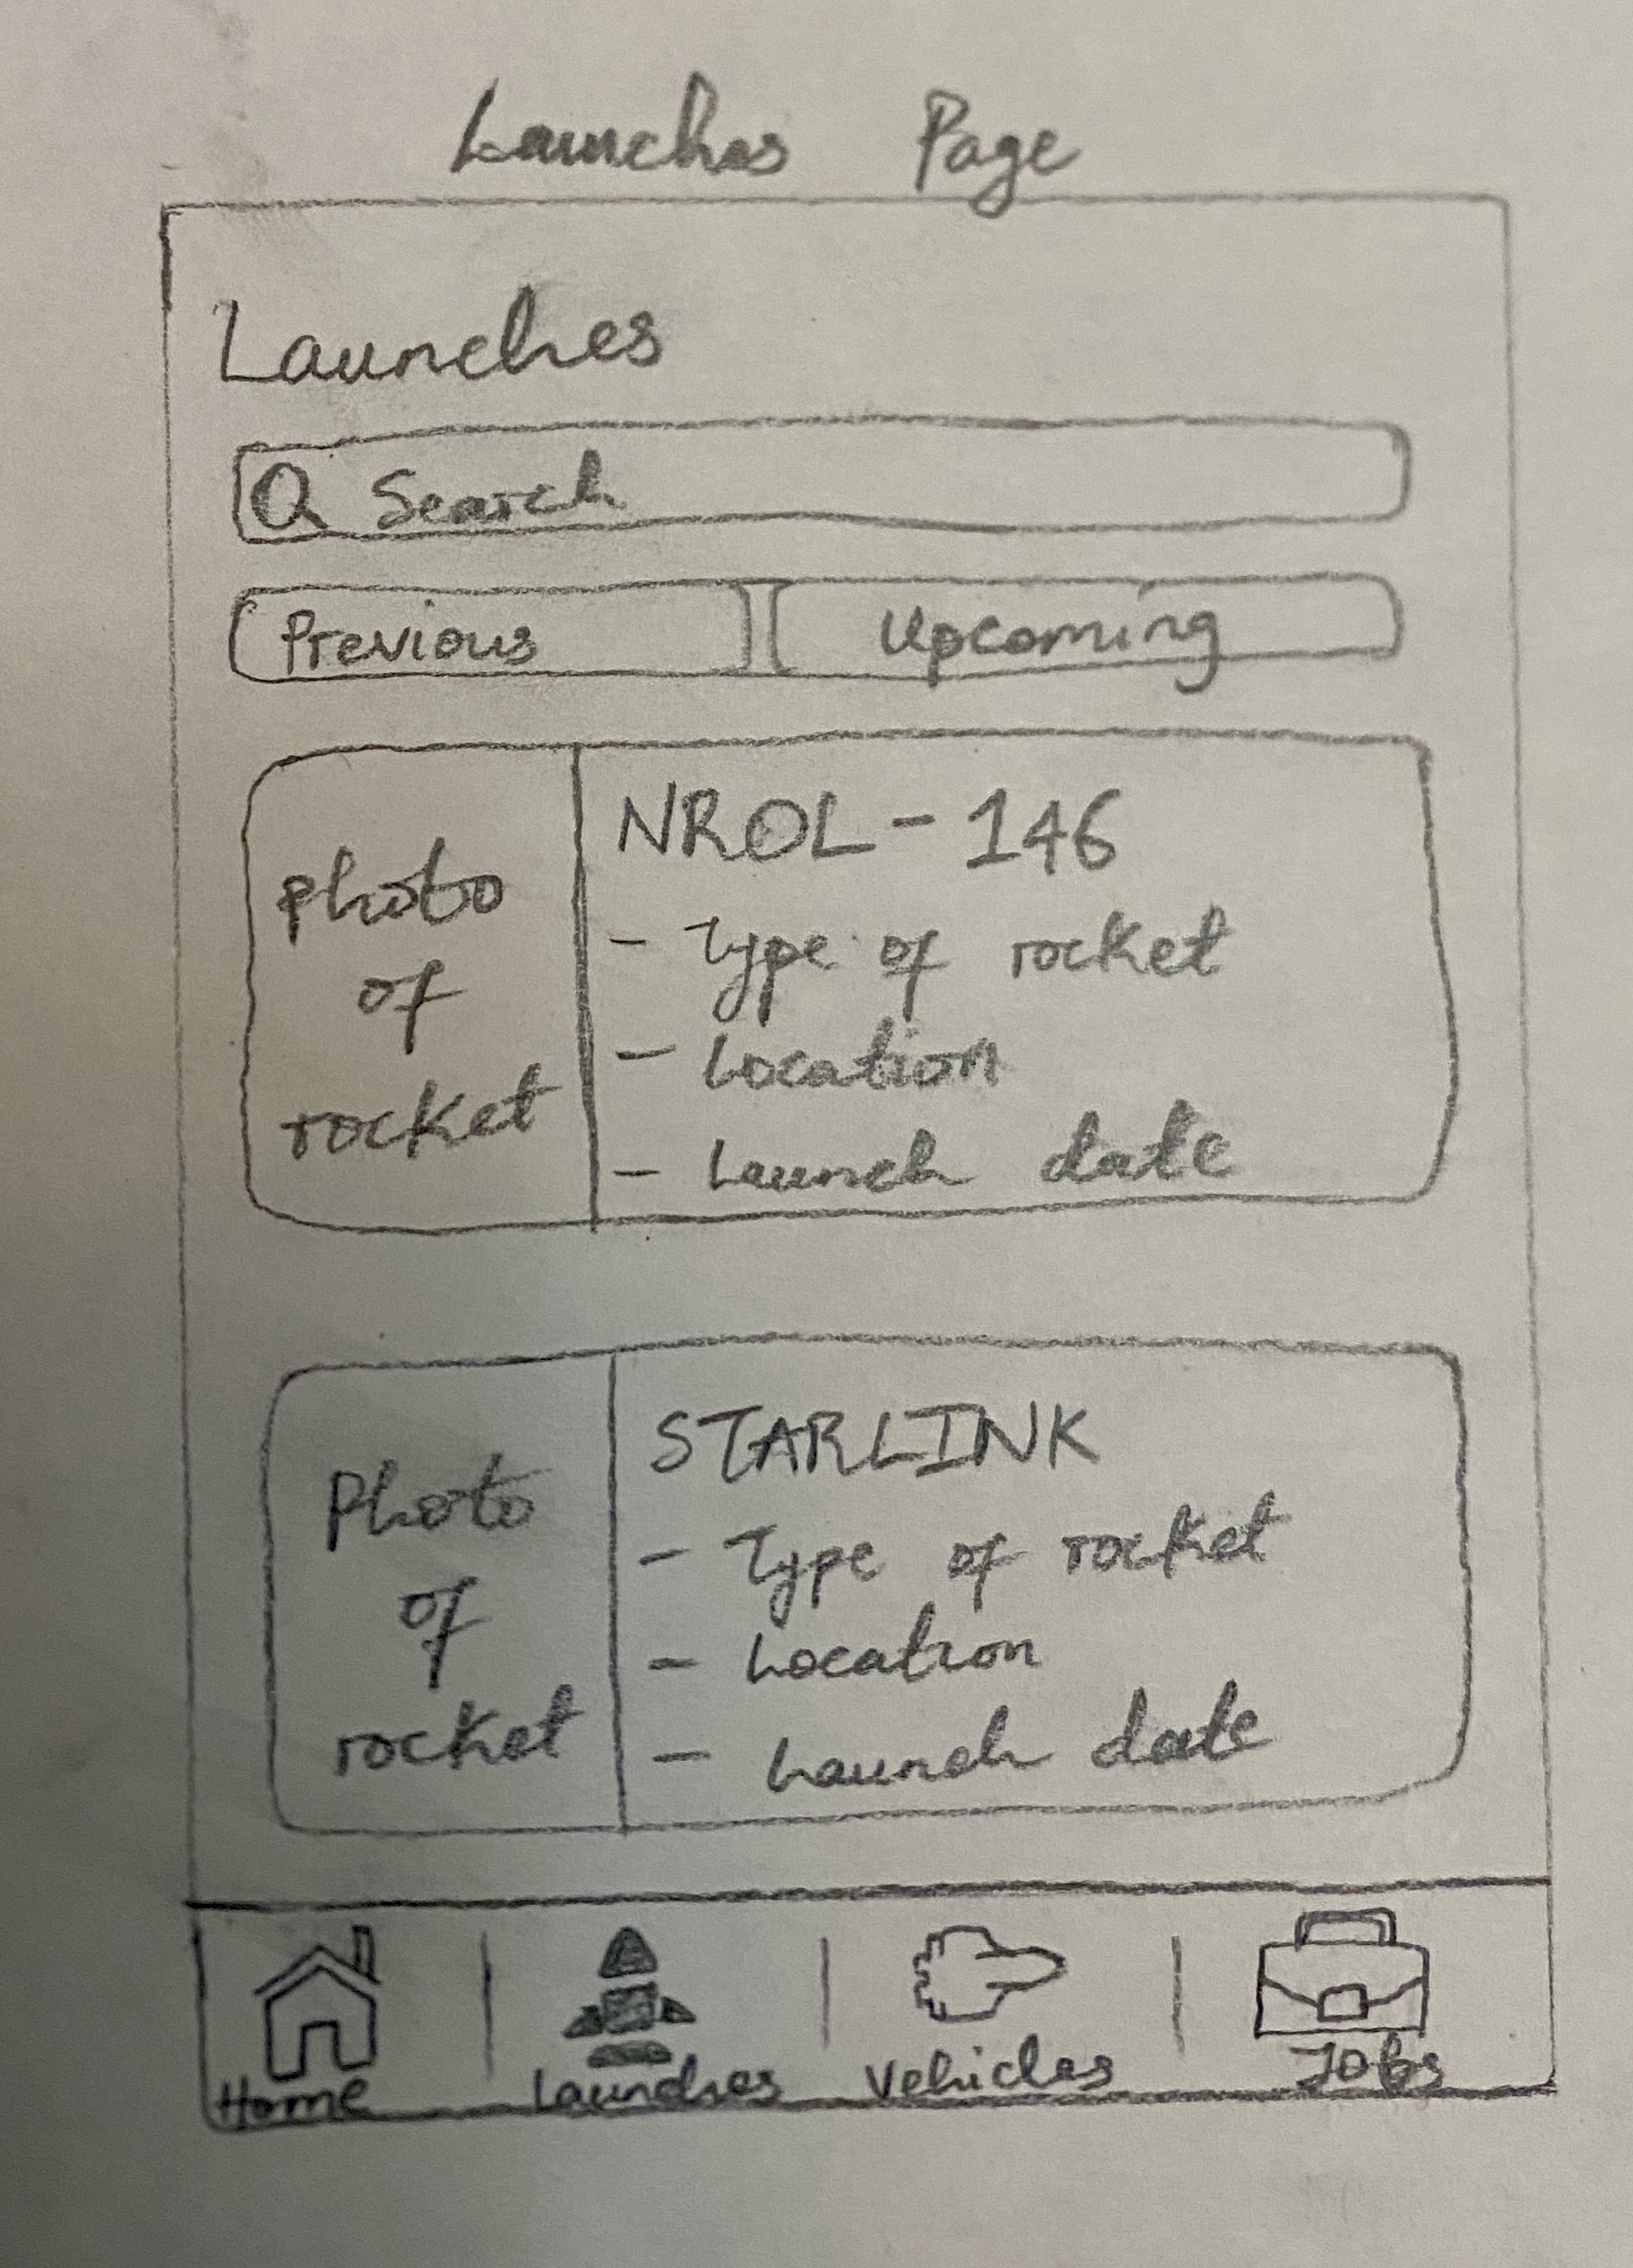 Launches Page
Launches
Search
Previous
Upcoming
photo
of
rocket
NROL - 146
- Type of rocket
- Location
- Launch date
Photo
of
rocket
STARLINK
- Type of rocket
- Location
- Launch date
Home
Launches
Vehicles
Jobs